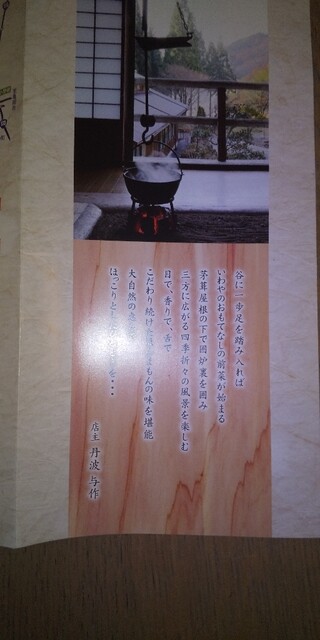 谷に一歩足を踏み入れば
いわやのおもてなしの前菜が始まる
茅茸屋根の下で囲炉裏を囲み
三方に広がる四季折々の風景を楽しむ
目で、香りで、舌で
こだわり続けた
もんの味を堪能
大自然の恵
ほっこりと
を・・・
店主 丹波与作